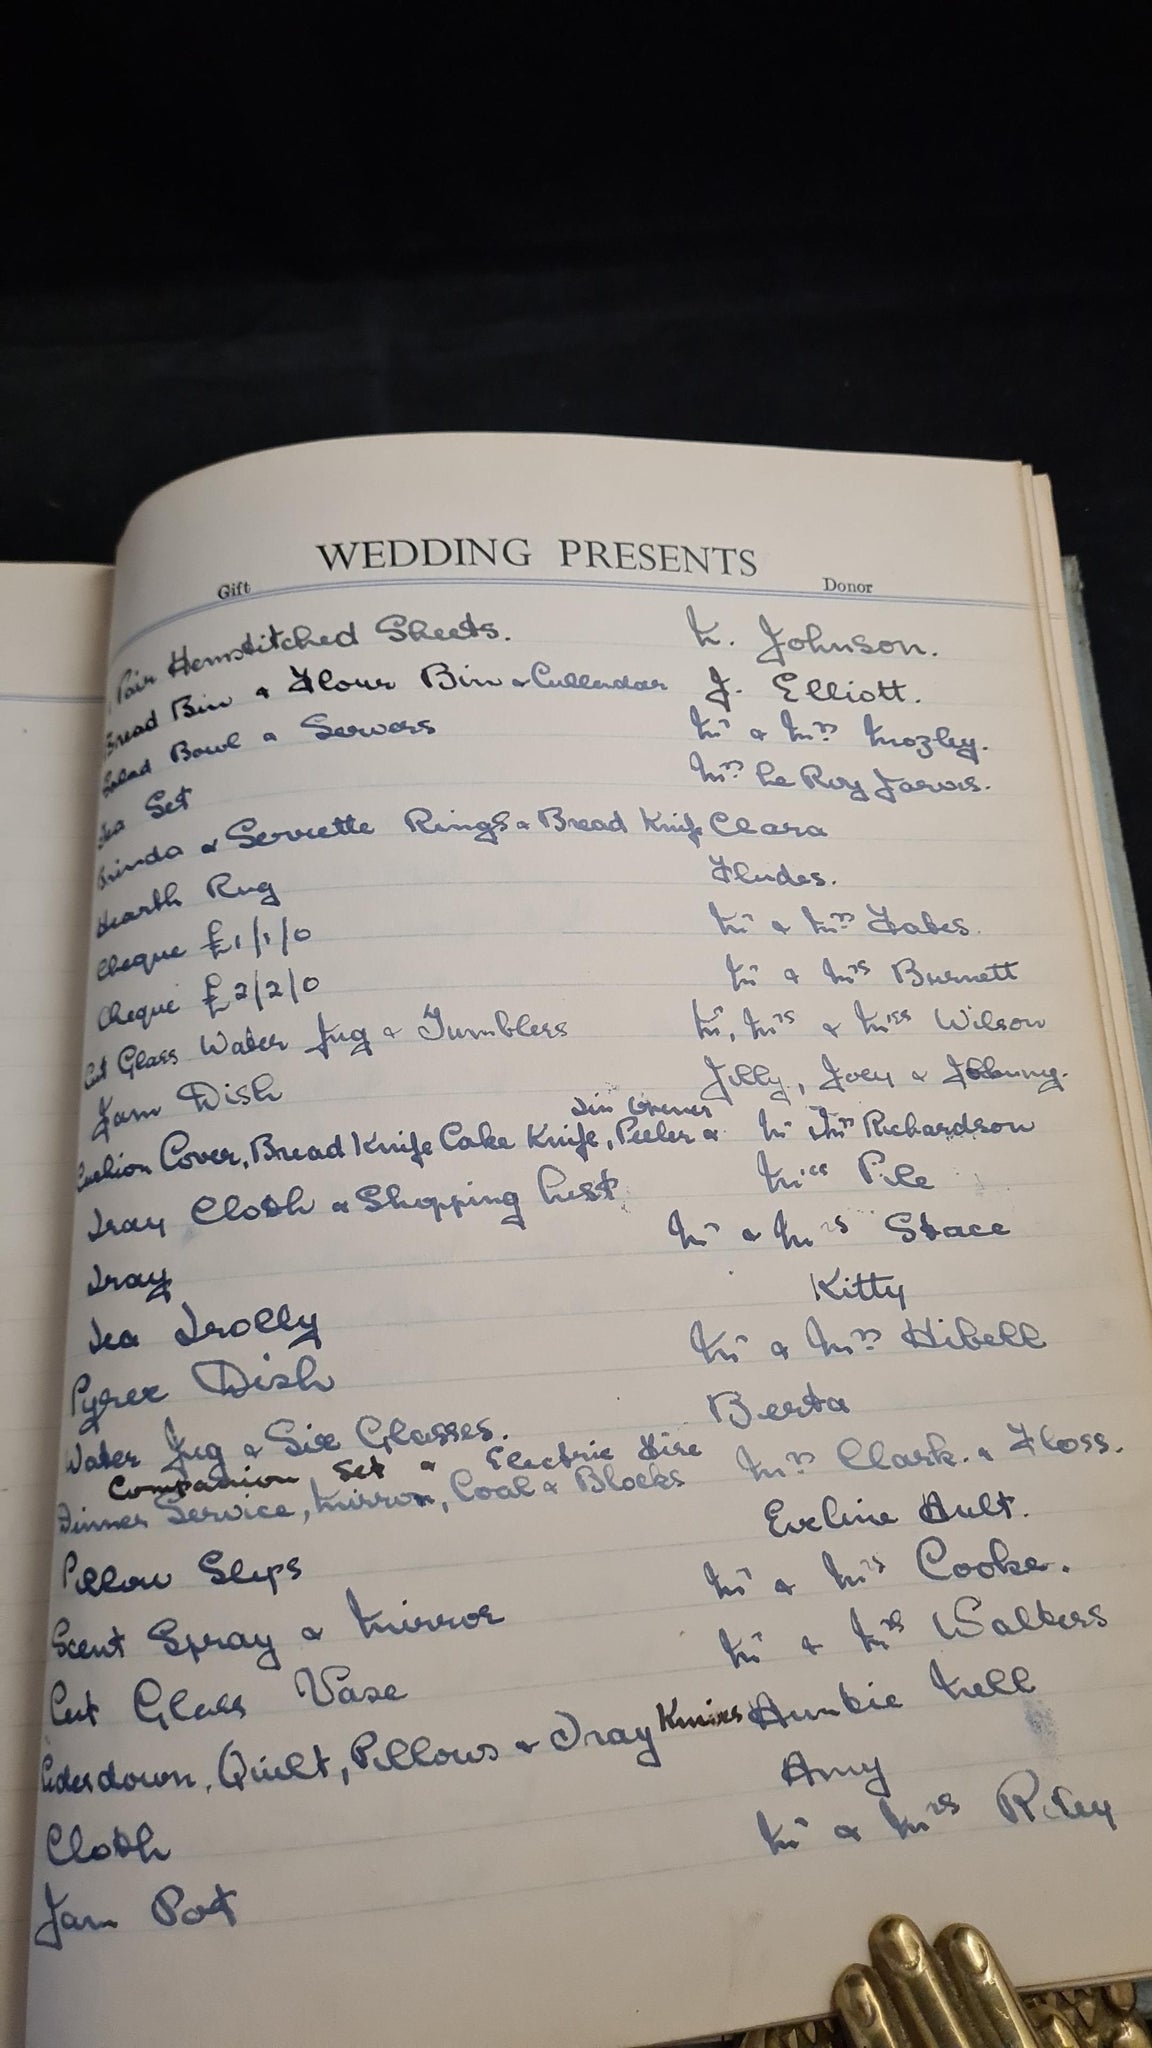 WEDDING PRESENTS
Gift Donor
1 Pair Hemstitched Sheets. K. Johnson.
Bread Bin & Flour Bin & Cullendar J. Elliott.
Salad Bowl & Servers Mr & Mrs Mozley.
Tea Set Mrs Le Roy Jarvis.
& Serviette Rings & Bread Knife Clara
Hearth Rug Fludes.
Cheque £1/1/0 Mr & Mrs
Cheque £2/2/0 Mr & Mrs Burnett
Cut Glass Water Jug & Tumblers Mr, Mrs & Miss Wilson
Jam Dish Jilly, Joey &
Tin Opener
Cushion Cover, Bread Knife Cake Knife, Peeler & Mr & Mrs Richardson
Tray Cloth & Shopping List Miss Pile
Tray Mr & Mrs Stace
Tea Trolly Kitty
Pyrex Dish Mr & Mrs Hibell
Water Jug & Six Glasses. Berta
Companion Set & Electric Fire
Dinner Service, Mirror, Coal & Blocks Mrs Clark. & Floss.
Pillow Slips Eveline Ault.
Scent Spray & Mirror Mr & Mrs Cooke.
Cut Glass Vase Mr & Mrs Walters
Eiderdown, Quilt, Pillows & Tray Knives Auntie Nell
Cloth Amy
Jam Pot Mr & Mrs Riley